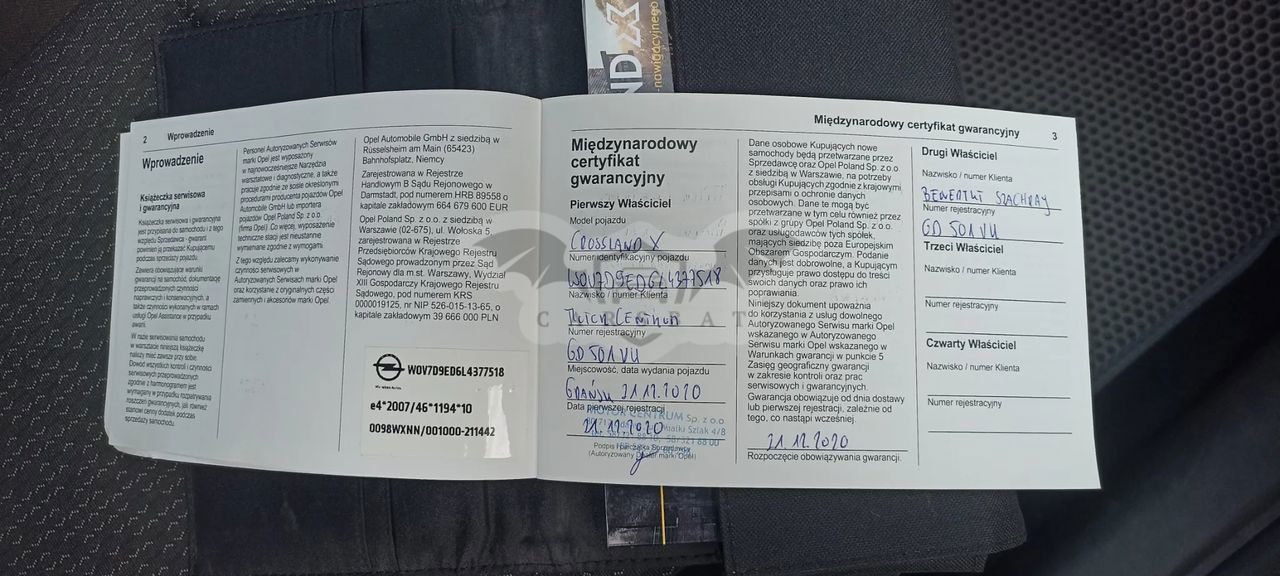 ND X
-nawigacyjnego
2 Wprowadzenie
Wprowadzenie
Książeczka serwisowa
i gwarancyjna
Książeczka serwisowa i gwarancyjna
jest przypisana do samochodu i z tego
względu Sprzedawca - gwarant
powinien ją przekazać Kupującemu
podczas sprzedaży pojazdu.
Zawiera obowiązujące warunki
gwarancji na samochód, dokumentację
przeprowadzonych czynności
naprawczych i konserwacyjnych, a
także czynności wykonanych w ramach
usługi Opel Assistance w przypadku
awarii.
W razie serwisowania samochodu
w warsztacie niniejszą książeczkę
należy mieć zawsze przy sobie.
Dowód wszystkich kontroli i czynności
serwisowych przeprowadzonych
zgodnie z harmonogramem jest
wymagany w przypadku rozpatrywania
roszczeń gwarancyjnych, jak również
stanowi cenny dodatek podczas
sprzedaży samochodu.
Personel Autoryzowanych Serwisów
marki Opel jest wyposażony
w najnowocześniejsze Narzędzia
warsztatowe i diagnostyczne, a także
pracuje zgodnie ze ściśle określonymi
procedurami producenta pojazdów Opel
Automobile GmbH lub importera
pojazdów Opel Poland Sp. z o.o.
(firma Opel). Co więcej, wyposażenie
techniczne stacji jest nieustannie
wymieniane zgodnie z wymogami.
Z tego względu zalecamy wykonywanie
czynności serwisowych w
Autoryzowanych Serwisach marki Opel
oraz korzystanie z oryginalnych części
zamiennych i akcesoriów marki Opel.
Opel Automobile GmbH z siedzibą w
Rüsselsheim am Main (65423)
Bahnhofsplatz, Niemcy
Zarejestrowana w Rejestrze
Handlowym B Sądu Rejonowego w
Darmstadt, pod numerem HRB 89558 o
kapitale zakładowym 664 679 600 EUR
Opel Poland Sp. z o.o. z siedzibą w
Warszawie (02-675), ul. Wołoska 5,
zarejestrowana w Rejestrze
Przedsiębiorców Krajowego Rejestru
Sądowego prowadzonym przez Sąd
Rejonowy dla m.st. Warszawy, Wydział
XIII Gospodarczy Krajowego Rejestru
Sądowego, pod numerem KRS
0000019125, nr NIP 526-015-13-65, o
kapitale zakładowym 39 666 000 PLN
W0V7D9ED6L4377518
e4*2007/46*1194*10
0098WXNN/001000-211442
Międzynarodowy certyfikat gwarancyjny 3
Międzynarodowy
certyfikat
gwarancyjny
Pierwszy Właściciel
Model pojazdu
CROSSLAND X
Numer identyfikacyjny pojazdu
W0V7D9ED6L4377518
Nazwisko / numer Klienta
Numer rejestracyjny
GD 501VU
Miejscowość, data wydania pojazdu
GDAŃSK 21.12.2020
Data pierwszej rejestracji
21.12.2020
MOTOR CENTRUM Sp. z o.o.
Miałki Szlak 4/8
Podpis i pieczątka Sprzedawcy
(Autoryzowany Dealer marki Opel)
Dane osobowe Kupujących nowe
samochody będą przetwarzane przez
Sprzedawcę oraz Opel Poland Sp. z o.o.
z siedzibą w Warszawie, na potrzeby
obsługi Kupujących zgodnie z krajowymi
przepisami o ochronie danych
osobowych. Dane te mogą być
przetwarzane w tym celu również przez
spółki z grupy Opel Poland Sp. z o.o.
oraz usługodawców tych spółek,
mających siedzibę poza Europejskim
Obszarem Gospodarczym. Podanie
danych jest dobrowolne, a Kupującym
przysługuje prawo dostępu do treści
swoich danych oraz prawo ich
poprawiania.
Niniejszy dokument upoważnia
do korzystania z usług dowolnego
Autoryzowanego Serwisu marki Opel
wskazanego w Autoryzowanego
Serwisu marki Opel wskazanego w
Warunkach gwarancji w punkcie 5
Zasięg geograficzny gwarancji
w zakresie kontroli oraz prac
serwisowych i gwarancyjnych.
Gwarancja obowiązuje od dnia dostawy
lub pierwszej rejestracji, zależnie od
tego, co nastąpi wcześniej.
21.12.2020
Rozpoczęcie obowiązywania gwarancji.
Drugi Właściciel
Nazwisko / numer Klienta
SZACHRAY
Numer rejestracyjny
GD 501VU
Trzeci Właściciel
Nazwisko / numer Klienta
Numer rejestracyjny
Czwarty Właściciel
Nazwisko / numer Klienta
Numer rejestracyjny
CARSBAT